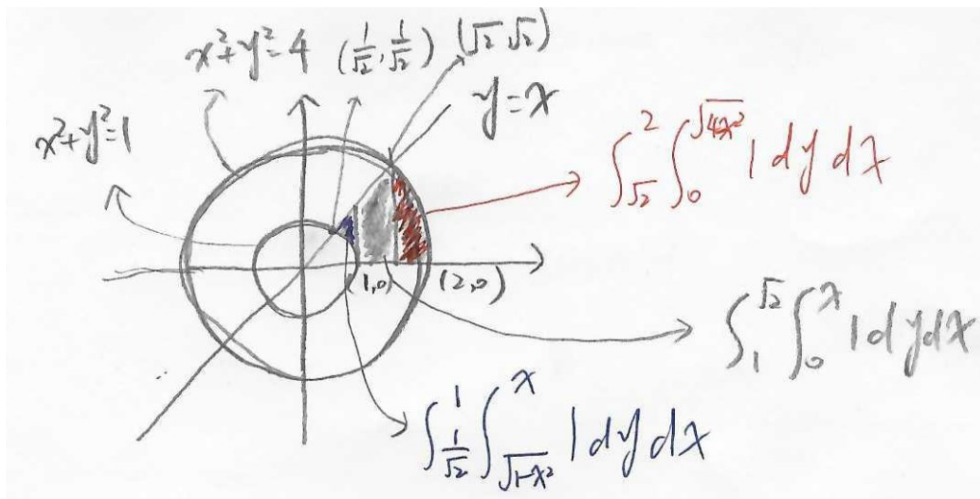 x²+y²=4 (1/√2, 1/√2) (√2, √2)
y=x
x²+y²=1
∫_{√2}^{2} ∫_{0}^{√4x²} 1 dy dx
(1,0) (2,0)
∫_{1}^{√2} ∫_{0}^{x} 1 dy dx
∫_{1/√2}^{1} ∫_{√1-x²}^{x} 1 dy dx